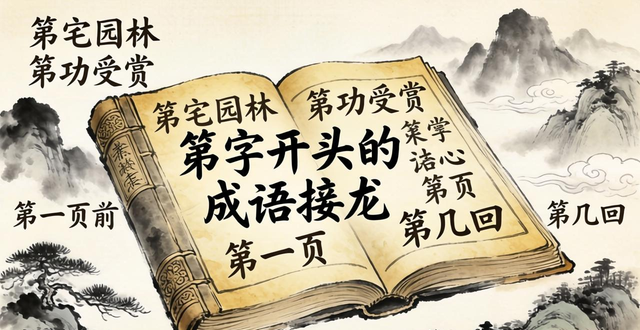 第宅园林
第功受赏
第宅园林
第功受赏
第字开头的
成语接龙
第一页
心
第页
第几回
第一页前
第几回